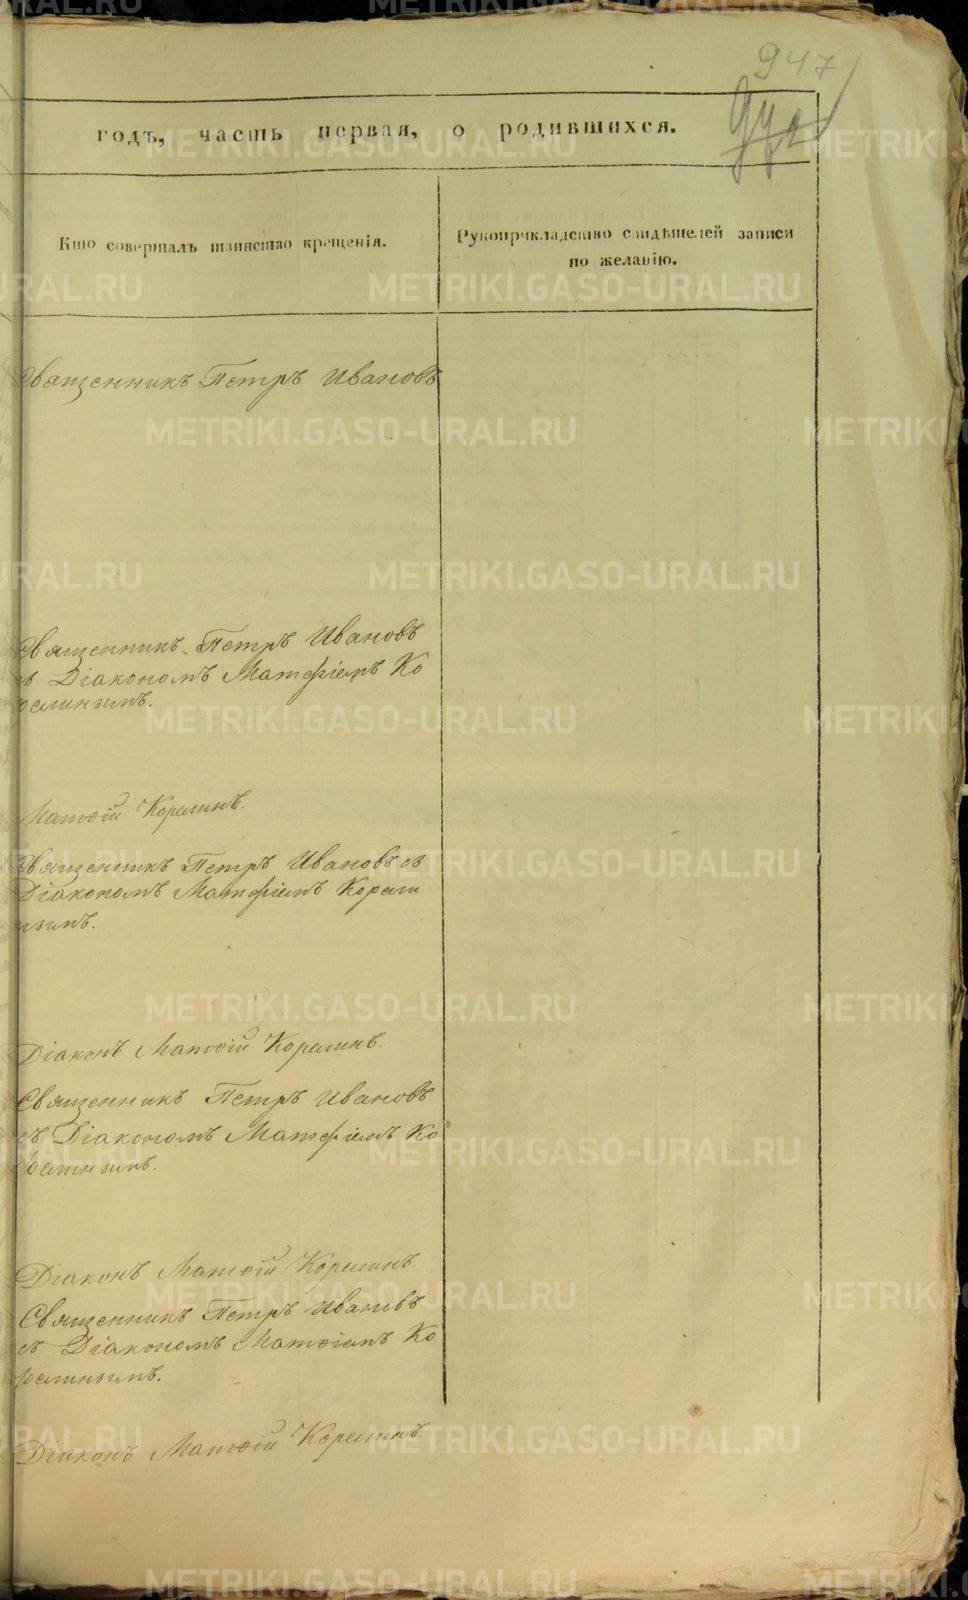 947
годъ, часть первая, о родившихся.
Кто совершалъ таинство крещенія.
Рукоприкладство свидѣтелей записи
по желанію.
Священникъ Петръ Ивановъ
Священникъ Петръ Ивановъ
съ Діакономъ Матфіемъ Ко
релинымъ.
Матѳій Корелинъ.
Священникъ Петръ Ивановъ съ
Діакономъ Матфіемъ Корели
нымъ.
Діаконъ Матѳій Корелинъ.
Священникъ Петръ Ивановъ
съ Діакономъ Матфіемъ Ко
релинымъ.
Діаконъ Матѳій Корелинъ.
Священникъ Петръ Ивановъ
съ Діакономъ Матѳіемъ Ко
релинымъ.
Діаконъ Матѳій Корелинъ.
METRIKI.GASO-URAL.RU